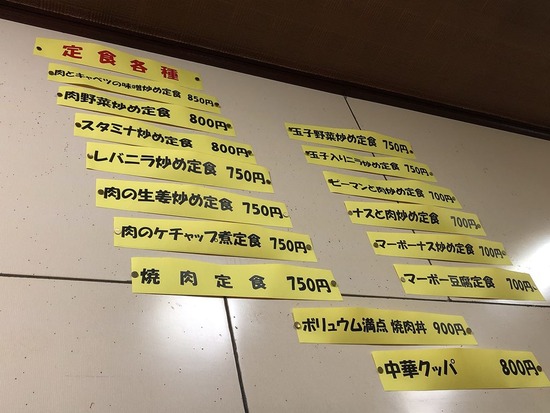 定食各種
肉とキャベツの味噌炒め定食 850円
肉野菜炒め定食 800円
スタミナ炒め定食 800円
レバニラ炒め定食 750円
肉の生姜炒め定食 750円
肉のケチャップ煮定食 750円
焼肉定食 750円
玉子野菜炒め定食 750円
玉子入りニラ炒め定食 750円
ピーマンと肉炒め定食 700円
ナスと肉炒め定食 700円
マーボーナス炒め定食 700円
マーボー豆腐定食 700円
ボリュウム満点 焼肉丼 900円
中華クッパ 800円